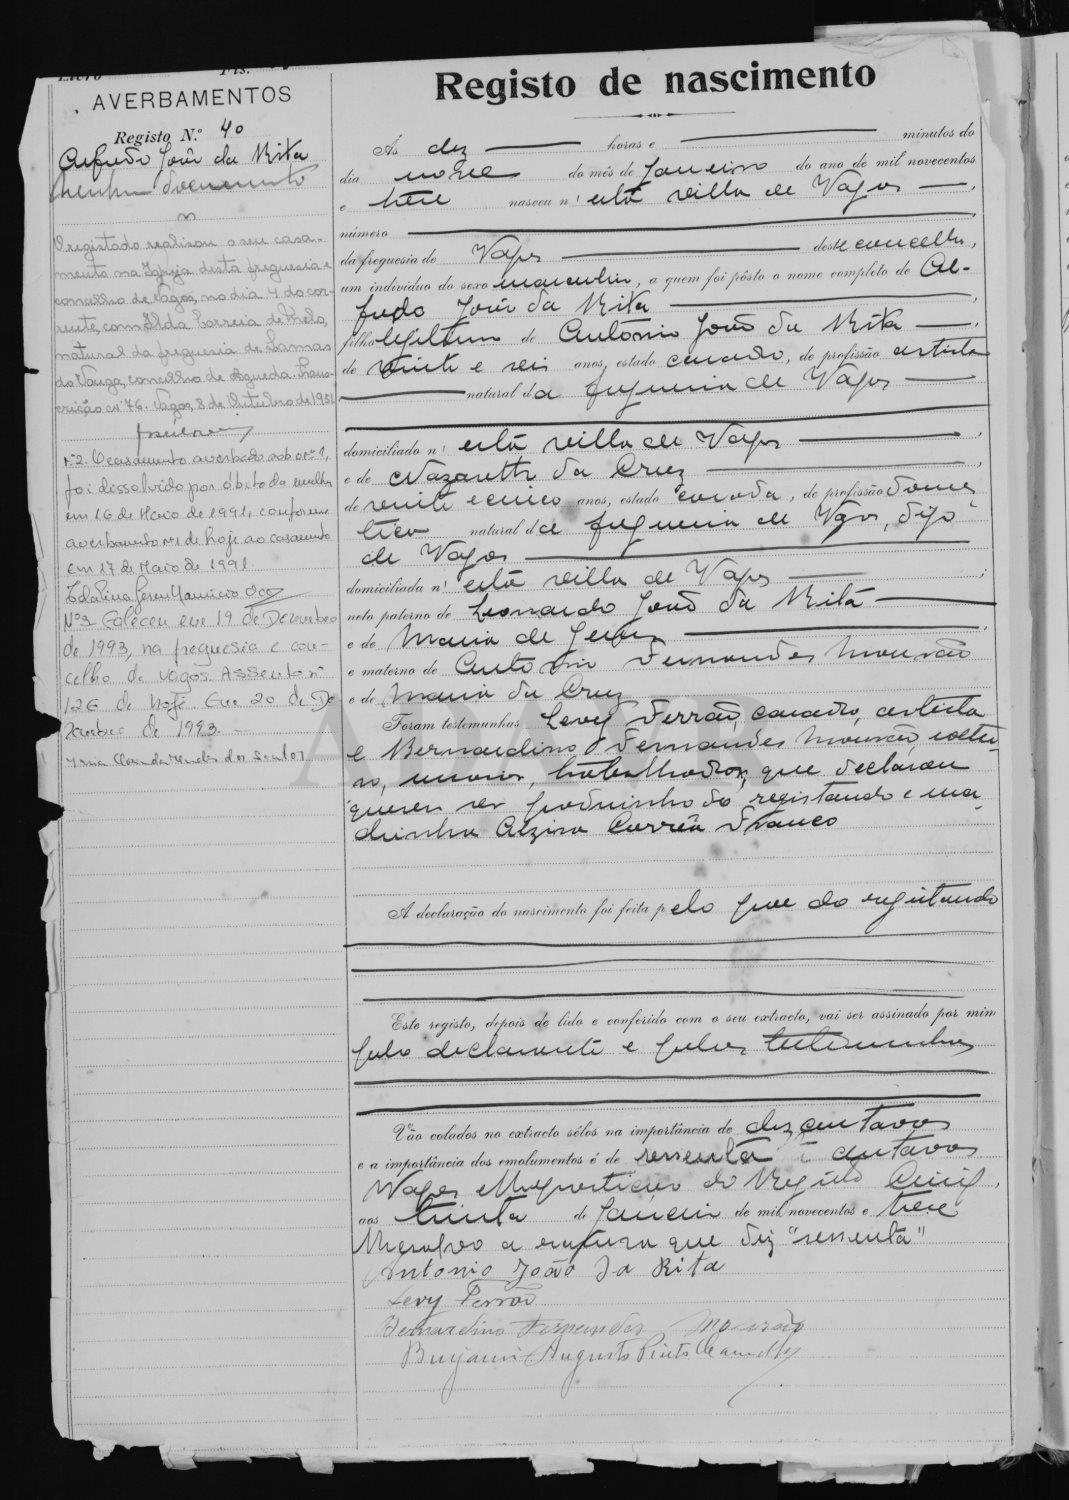 Livro Fls.
AVERBAMENTOS
Registo N.º 40
Alfredo João da Rita
Nenhum documento
O registado realizou o seu casa-
mento na Igreja desta freguesia e
concelho de Vagos, no dia 4 do cor-
rente, com Ilda Correia de Melo,
natural da freguesia de Lamas
do Vouga, concelho de Agueda. Trans-
crição nº 76. Vagos, 8 de Outubro de 1951
Nº2. O casamento averbado sob o nº 1,
foi dissolvido por óbito da mulher
em 16 de Maio de 1991, conforme
averbamento nº1 de hoje ao casamento
Em 17 de Maio de 1991.
Nº3 Faleceu em 19 de Dezembro
de 1993, na freguesia e con-
celho de Vagos Assento nº
126 de hoje. Em 20 de De
zembro de 1993.
Maria dos Santos
Registo de nascimento
Ás dez horas e minutos do
dia do mês de Janeiro do ano de mil novecentos
e treze nasceu n'esta villa de Vagos,
número
da freguesia de Vagos deste concelho,
um indivíduo do sexo masculino, a quem foi pôsto o nome completo de Al-
fredo João da Rita,
filho legitimo de António João da Rita,
de vinte e seis anos, estado casado, de profissão artista
natural da freguesia de Vagos
domiciliado n'esta villa de Vagos,
e de Nazareth da Cruz,
de vinte e cinco anos, estado casada, de profissão domes
tica natural da freguesia de Vagos, digo
de Vagos
domiciliada n'esta villa de Vagos;
neto paterno de Leonardo João da Rita
e de Maria de Jesus,
e materno de António Fernandes Mourão
e de Maria da Cruz
Foram testemunhas Levy Ferrão, casado, artista
e Bernardino Fernandes Mourão, soltei-
ro, menor, trabalhador, que declararam
querer ser padrinho do registando e ma-
drinha Alzira Corrêa Franco
A declaração do nascimento foi feita pelo pae do registando
Este registo, depois de lido e conferido com o seu extracto, vai ser assinado por mim
pelo declarante e pelas testemunhas
Vão colados no extracto sêlos na importância de dez centavos
e a importância dos emolumentos é de sessenta centavos
Vagos e Repartição do Registo Civil,
aos trinta de Janeiro de mil novecentos e treze
Resalvo a rasura que diz "sessenta"
Antonio João da Rita
Levy Ferrão
Bernardino Fernandes Mourão
Benjamin Augusto Pinto